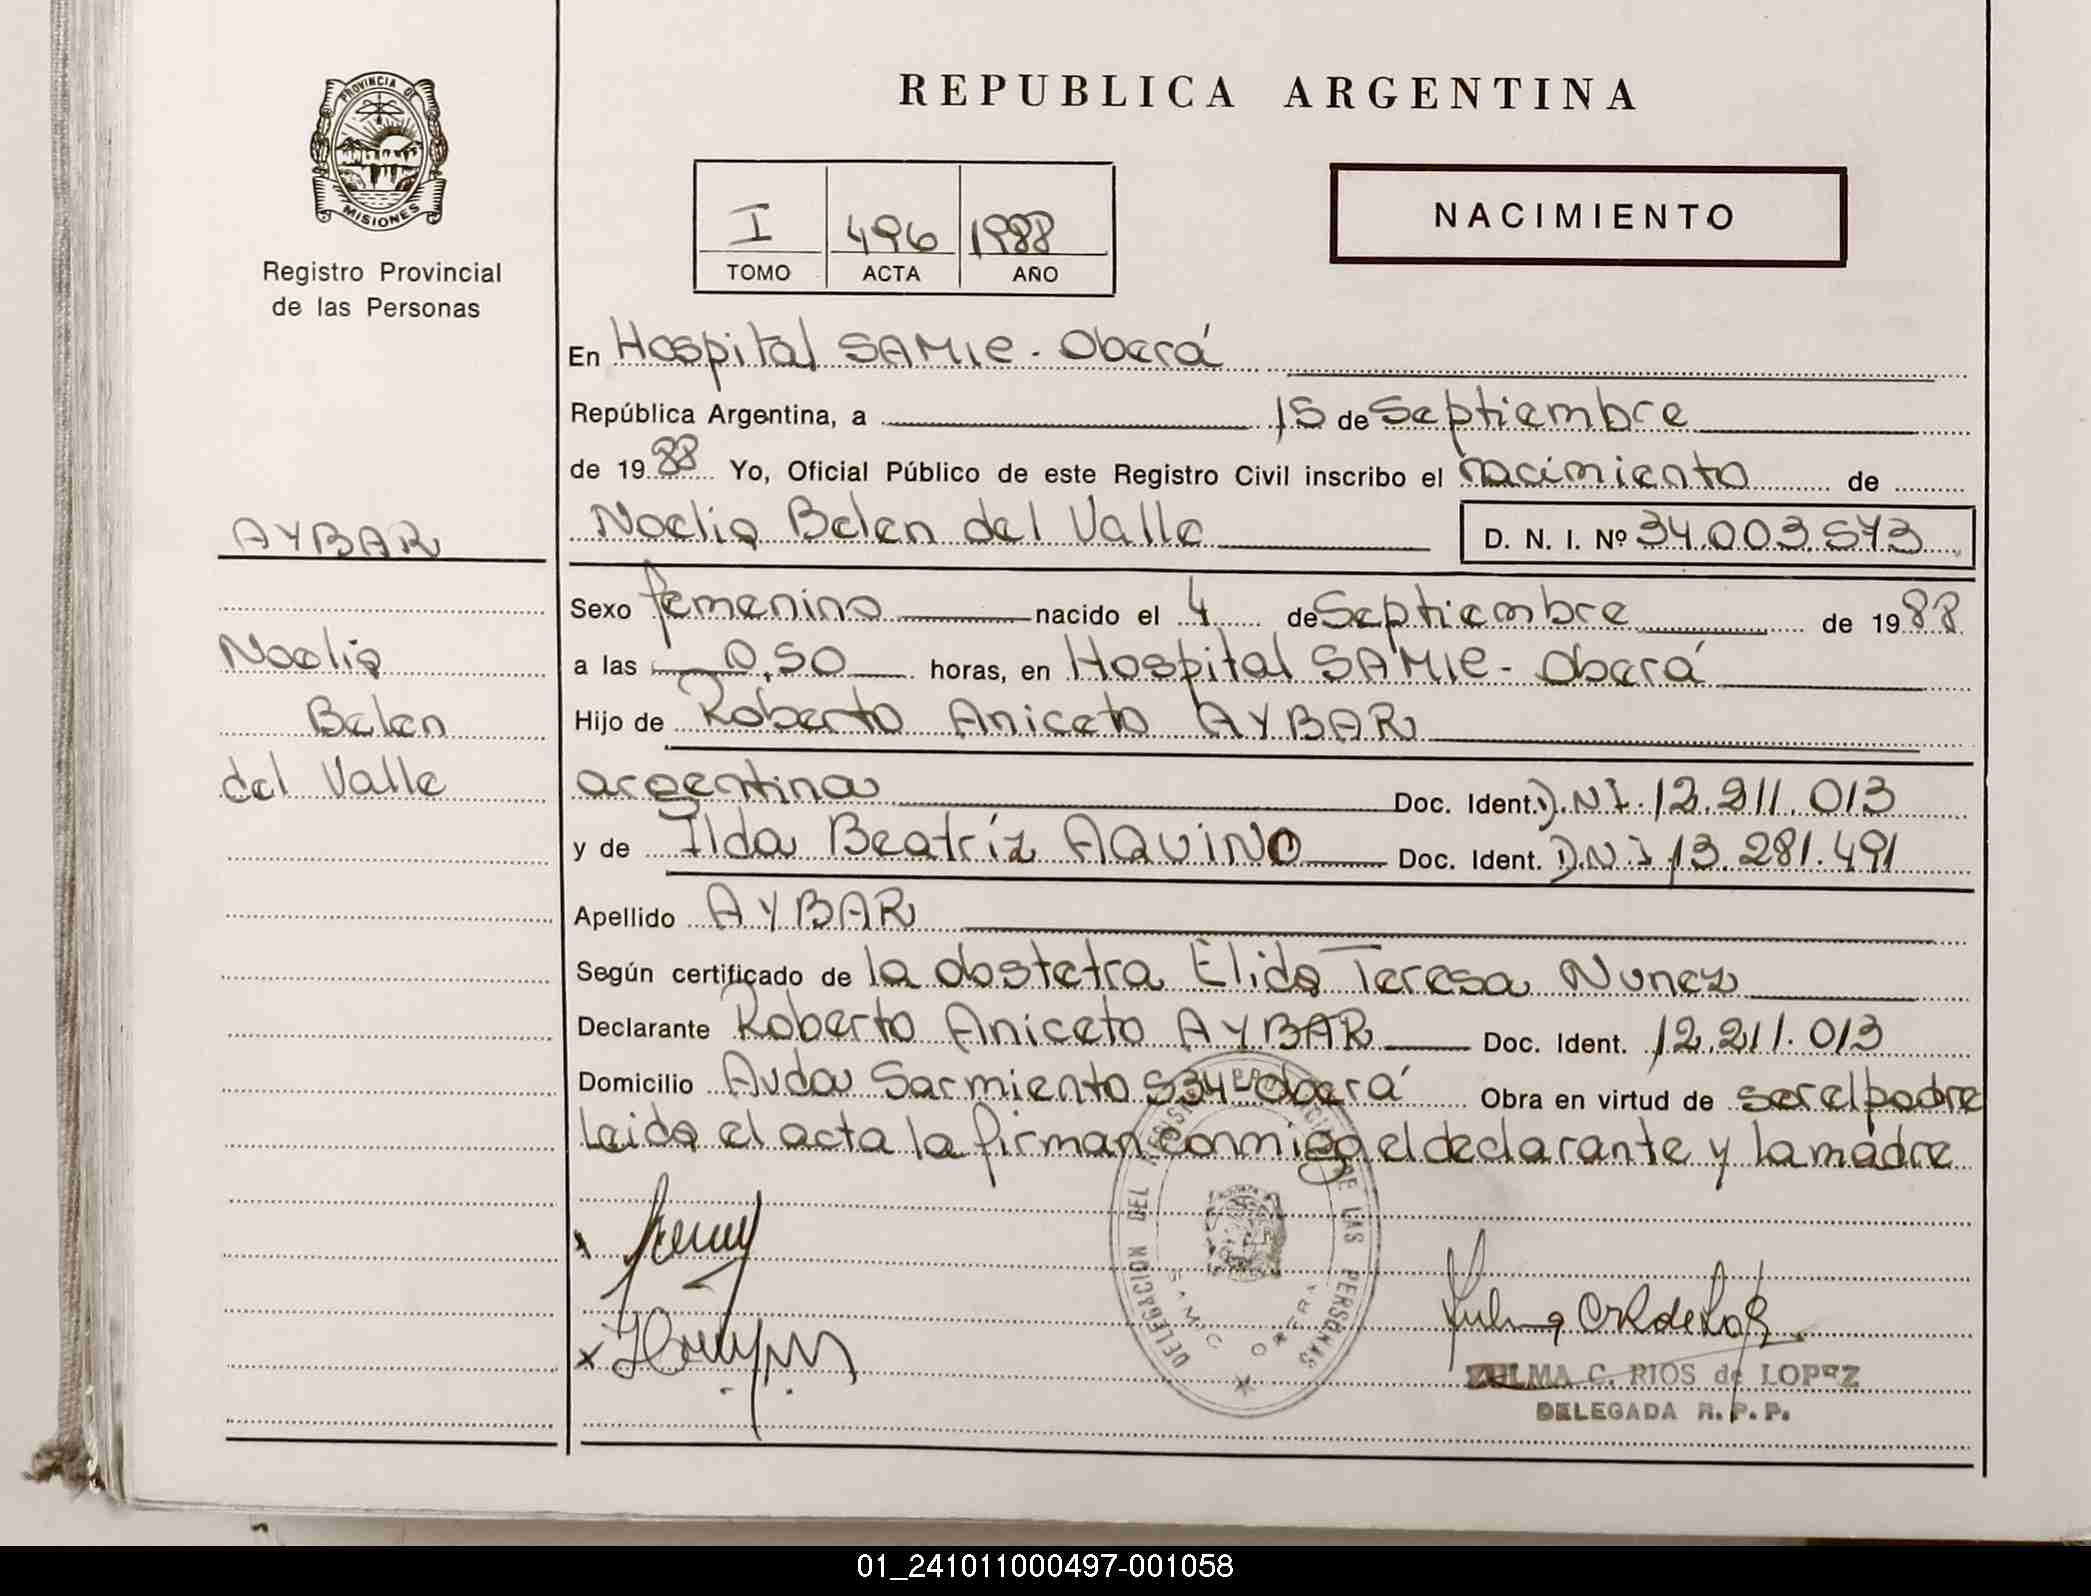 REPUBLICA ARGENTINA
PROVINCIA DE
MISIONES
Registro Provincial
de las Personas
I 496 1988
TOMO ACTA AÑO
NACIMIENTO
En Hospital SAMIC - Oberá
República Argentina, a 15 de Septiembre
de 1988 Yo, Oficial Público de este Registro Civil inscribo el nacimiento de
AYBAR
Noelia Belen del Valle D. N. I. Nº 34.003.573
Sexo femenino nacido el 4 de Septiembre de 1988
Noelia
a las 0,50 horas, en Hospital SAMIC - Oberá
Belen
Hijo de Roberto Aniceto AYBAR
del Valle
argentina Doc. Ident. D.N.I. 12.211.013
y de Ilda Beatríz AQUINO Doc. Ident. D.N.I 13.281.491
Apellido AYBAR
Según certificado de la obstetra Elida Teresa Nunez
Declarante Roberto Aniceto AYBAR Doc. Ident. 12.211.013
Domicilio Avda Sarmiento 534 - Oberá Obra en virtud de ser el padre
Leida el acta la firman conmigo el declarante y la madre
DELEGACION DEL REGISTRO PROVINCIAL DE LAS PERSONAS
SAMIC OBERA
ZULMA C. RIOS de LOPEZ
DELEGADA R. P. P.
01_241011000497-001058